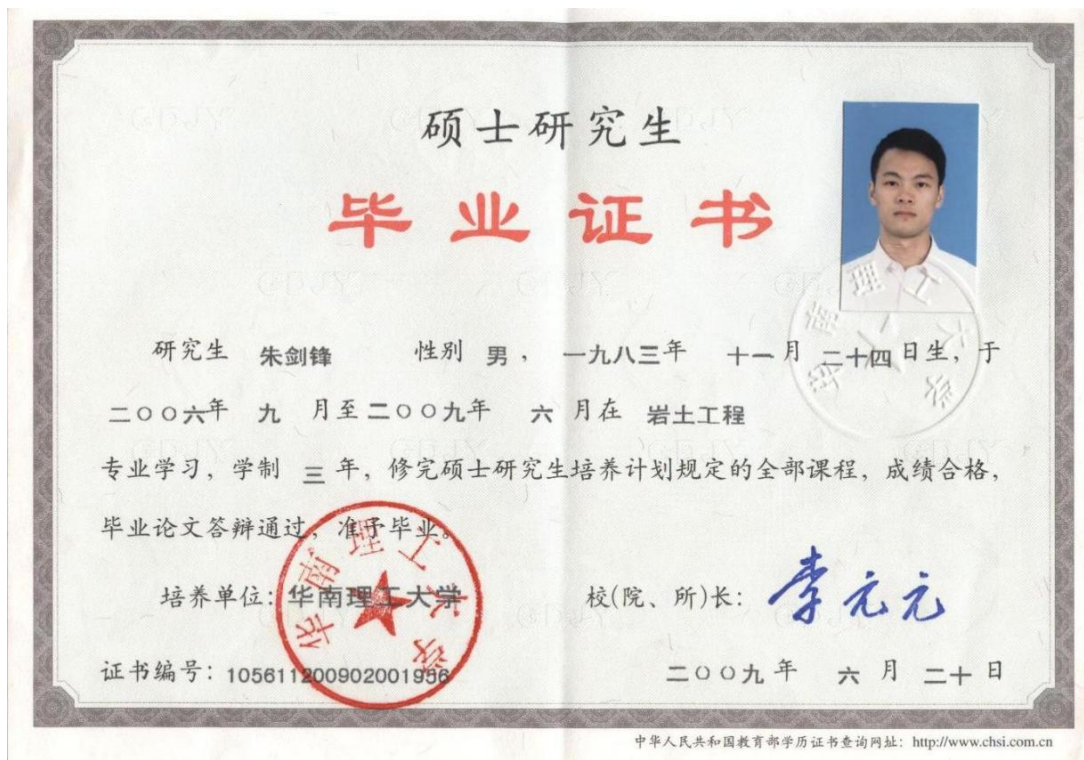 硕士研究生
毕业证书
研究生 朱剑锋 性别 男， 一九八三年 十一月 二十四日生，于
二〇〇六年 九 月至二〇〇九年 六 月在 岩土工程
专业学习，学制 三 年，修完硕士研究生培养计划规定的全部课程，成绩合格，
毕业论文答辩通过，准予毕业。
培养单位：华南理工大学 校(院、所)长：李元元
证书编号：105611200902001936 二〇〇九年 六 月 二十 日
华南理工大学
华南理工大学
中华人民共和国教育部学历证书查询网址：http://www.chsi.com.cn